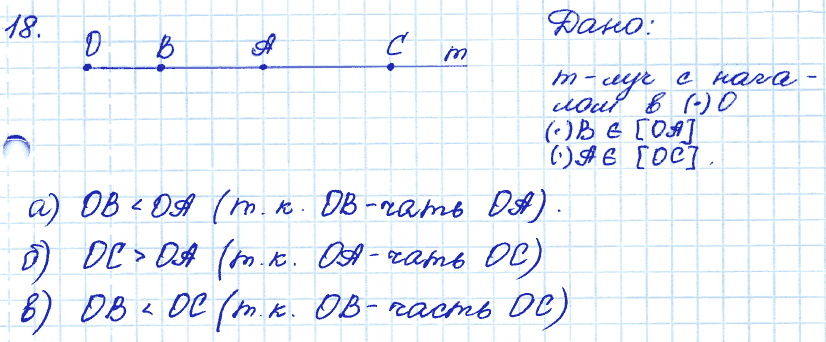 18.
O B A C m
Дано:
m-луч с нача-
лом в (·) O
(·) B ∈ [OA]
(·) A ∈ [OC].
а) OB < OA (т.к. OB-чать OA).
б) OC > OA (т.к. OA-чать OC)
в) OB < OC (т.к. OB-часть OC)